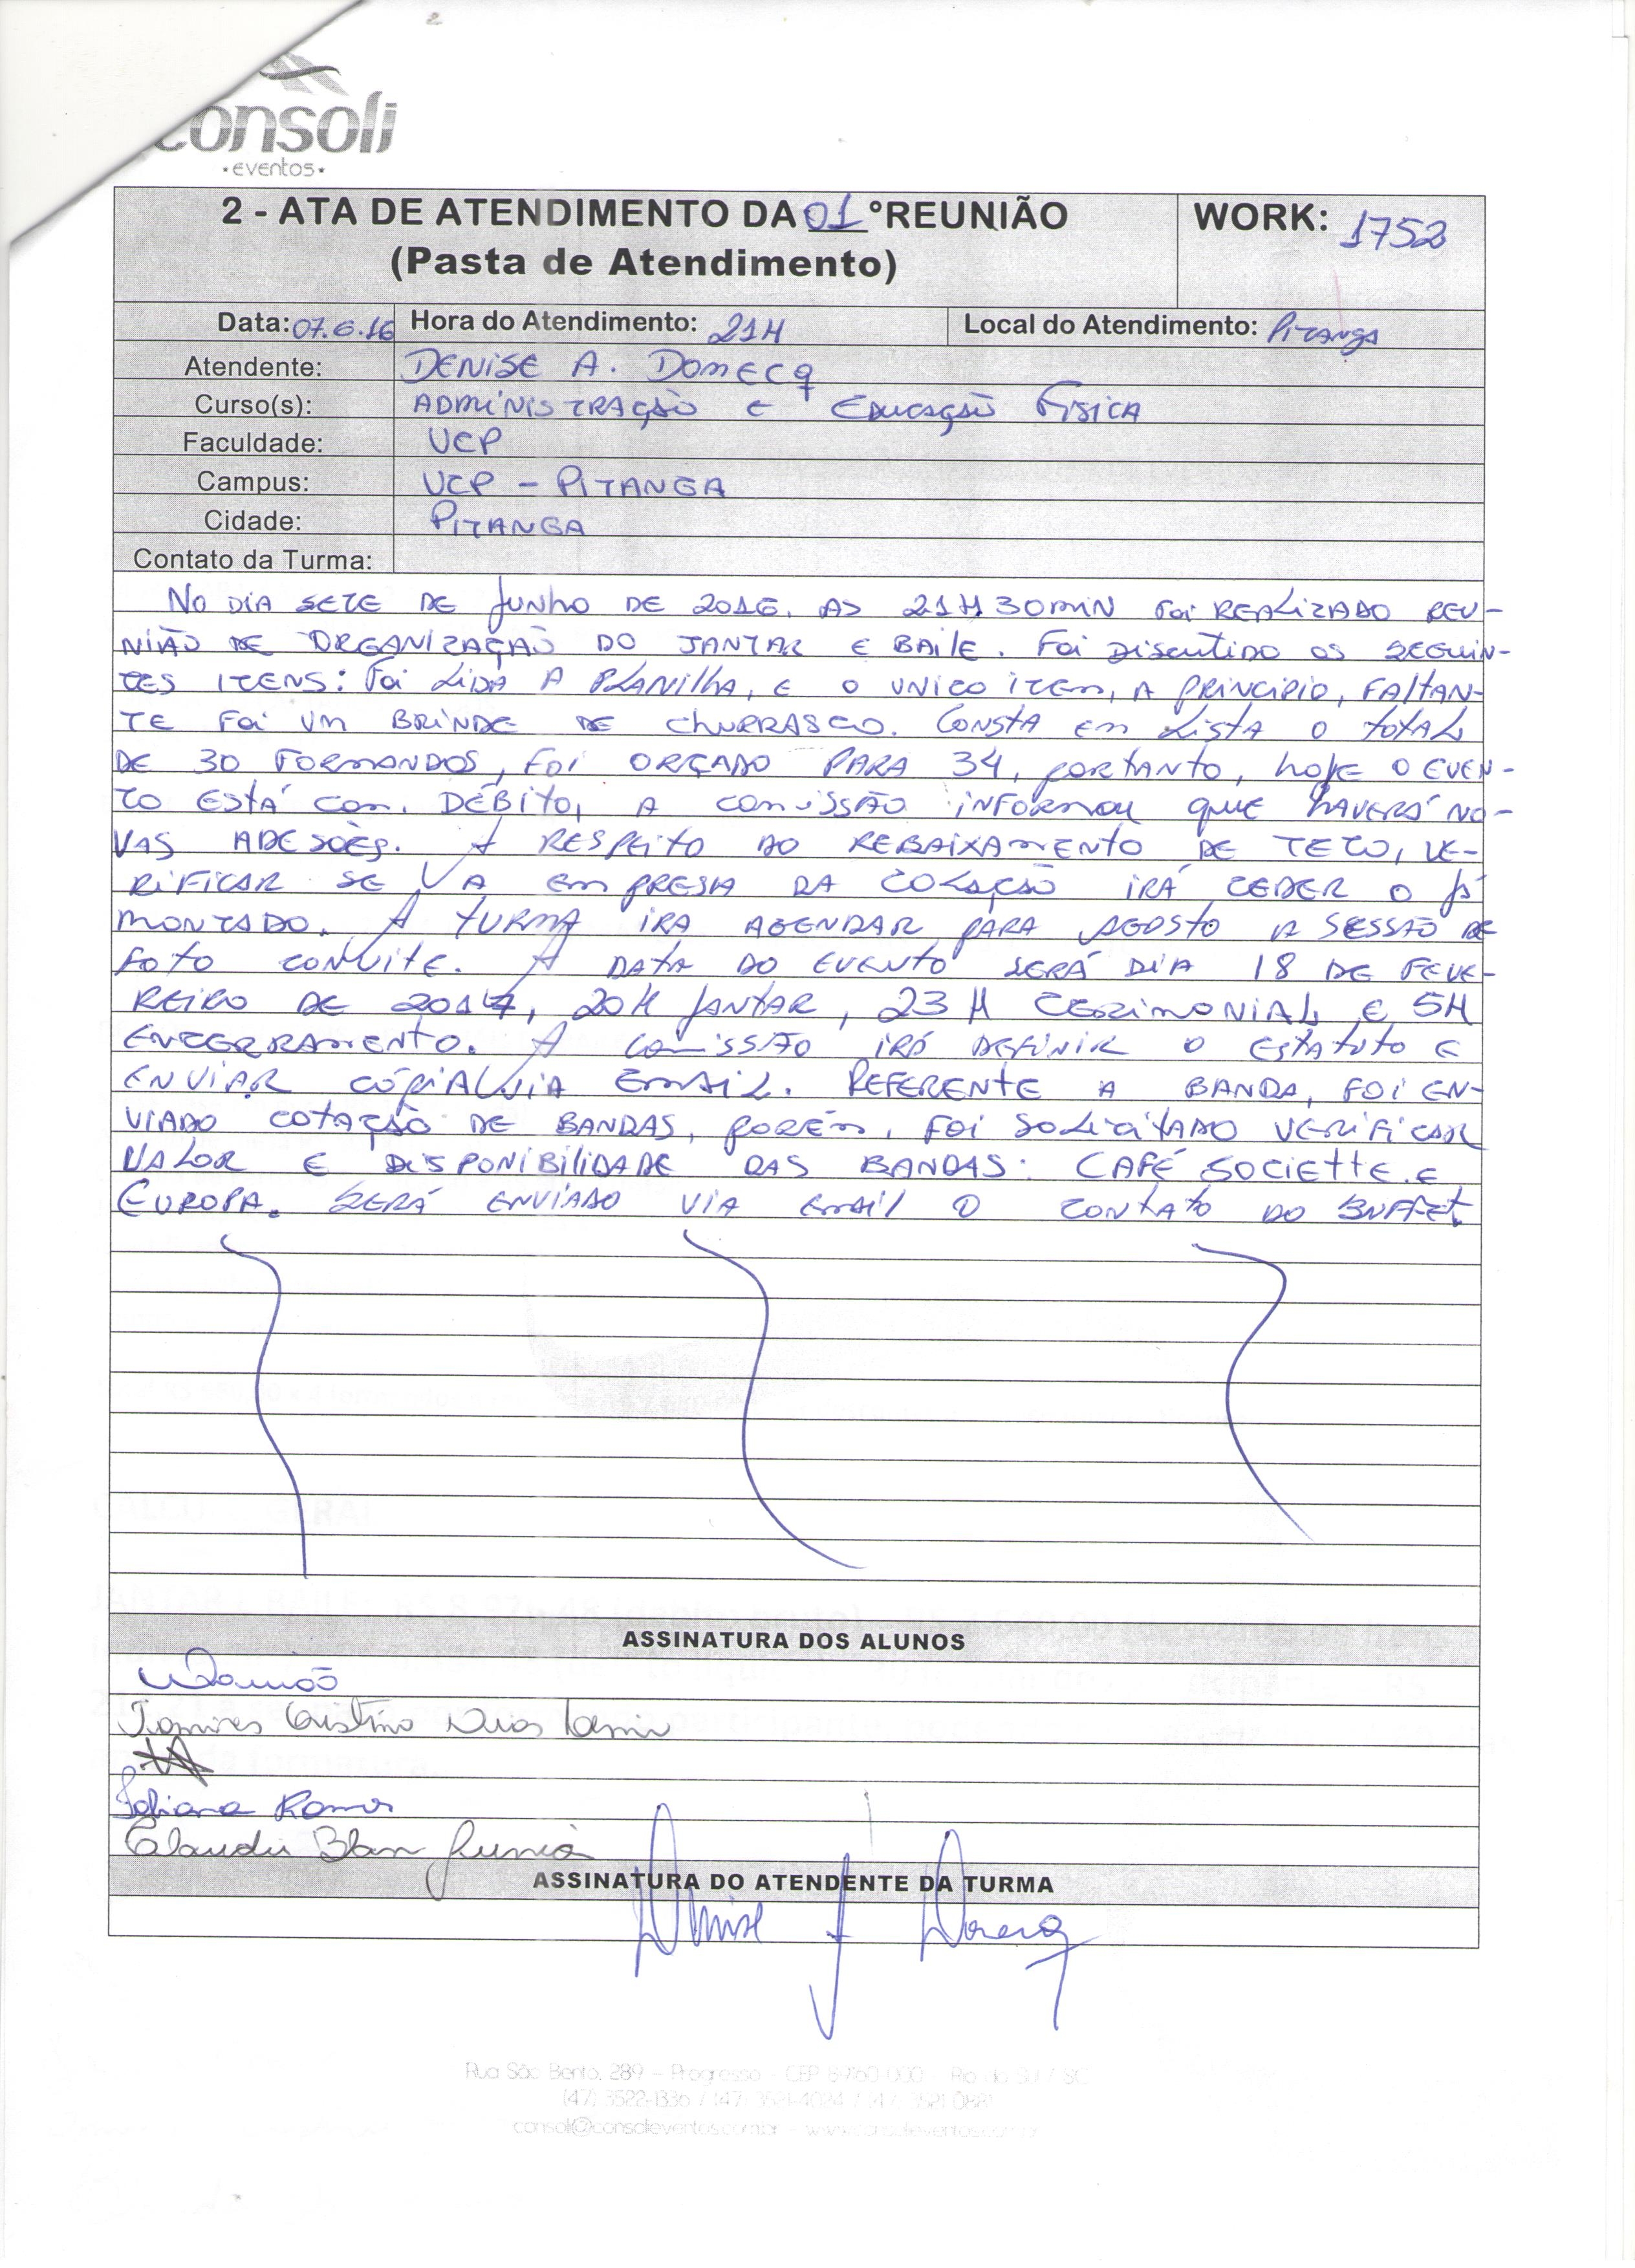 consoli
•eventos•
2 - ATA DE ATENDIMENTO DA 01 ºREUNIÃO
(Pasta de Atendimento)
WORK: 1752
Data: 07.6.16 Hora do Atendimento: 21H Local do Atendimento: Pitanga
Atendente: DENISE A. DOMECQ
Curso(s): ADMINISTRAÇÃO E EDUCAÇÃO FISICA
Faculdade: UCP
Campus: UCP - PITANGA
Cidade: PITANGA
Contato da Turma:
NO DIA SETE DE JUNHO DE 2016. AS 21H30MIN FOI REALIZADO REU-
NIÃO DE ORGANIZAÇÃO DO JANTAR E BAILE. FOI DISCUTIDO OS SEGUIN-
TES ITENS: FOI LIDA A PLANILHA, E O UNICO ITEM, A PRINCIPIO, FALTAN-
TE FOI UM BRINDE DE CHURRASCO. CONSTA EM LISTA O TOTAL
DE 30 FORMANDOS, FOI ORÇADO PARA 34, PORTANTO, HOJE O EVEN-
TO ESTÁ COM DÉBITO, A COMISSÃO INFORMOU QUE HAVERÁ NO-
VAS ADESÕES. A RESPEITO AO REBAIXAMENTO DE TETO, VE-
RIFICAR SE A EMPRESA DA COLAÇÃO IRÁ CEDER O JÁ
MONTADO. A TURMA IRA AGENDAR PARA AGOSTO A SESSÃO DE
FOTO CONVITE. A DATA DO EVENTO SERÁ DIA 18 DE FEVE-
REIRO DE 2017, 20H JANTAR, 23H CERIMONIAL E 5H
ENCERRAMENTO. A COMISSÃO IRÁ DEFINIR O ESTATUTO E
ENVIAR CÓPIA VIA EMAIL. REFERENTE A BANDA, FOI EN-
VIADO COTAÇÃO DE BANDAS, PORÉM, FOI SOLICITADO VERIFICAR
VALOR E DISPONIBILIDADE DAS BANDAS: CAFÉ SOCIETTE E
EUROPA. SERÁ ENVIADO VIA EMAIL O CONTATO DO BUFFET.
ASSINATURA DOS ALUNOS
Tamires Cristina Dias
Fabiana Ramos
Claudio Junior
ASSINATURA DO ATENDENTE DA TURMA
Denise A Domecq
Rua São Bento, 289 - Progresso - CEP 89160-000 - Rio do Sul / SC
(47) 3522-1336 / (47) 3521-4024 / (47) 3521 0881
consoli@consolieventos.com.br - www.consolieventos.com.br